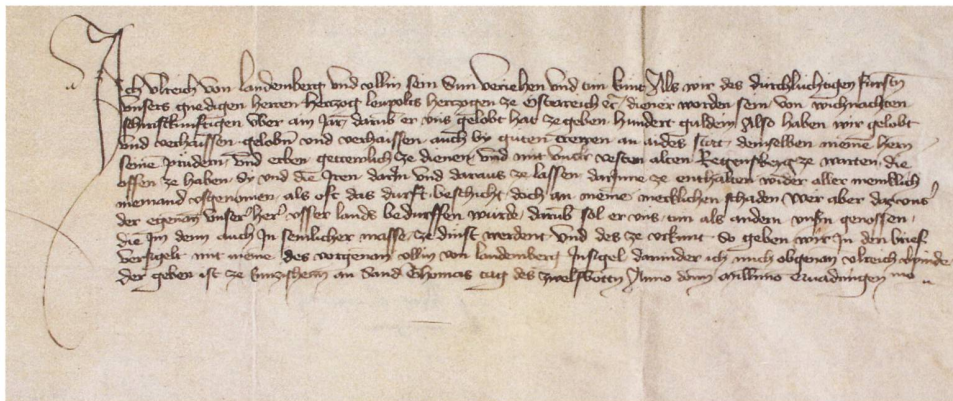 Ich Ulreich von Landemberg und Ullin sein Sun veriehen und tun kunt Als wir des durchluchtigen fursten
unsers gnedigen herren hertzog Leupolts hertzogen ze Osterreich etc diener worden sein von wichnachten
schirstkunftigen uber ain Jar darub er uns gelobt hat ze geben hundert guldein Also haben wir gelobt
und verhaissen geloben und verhaissen auch by guten trewen an aides stat demselben meinem hern
seinen prudern und erben getrewlich ze dienen und mit unsrer vesten alten Regensperg ze warten die
offen ze haben Sy und die Iren darin und daraus ze lassen darinne ze enthalten wider aller menklich
niemand usgenomen als oft das durft beschicht doch an meinen merklichen schaden Wer aber daz uns
der egenan unser her usser lands bedurffen wurde darub sol er uns tun als andern unsern genossen
die Im denn auch In semlicher masse ze dinst werdent Und des ze urkunt So geben wir In den brief
versigelt mit meinem des vorgenan Ullin von Landemberg Insigel darunder ich mich obgenan Ulreich vpinde
der geben ist ze Ensishein an Sand Thomas tag des zwelfboten Anno domini millimo